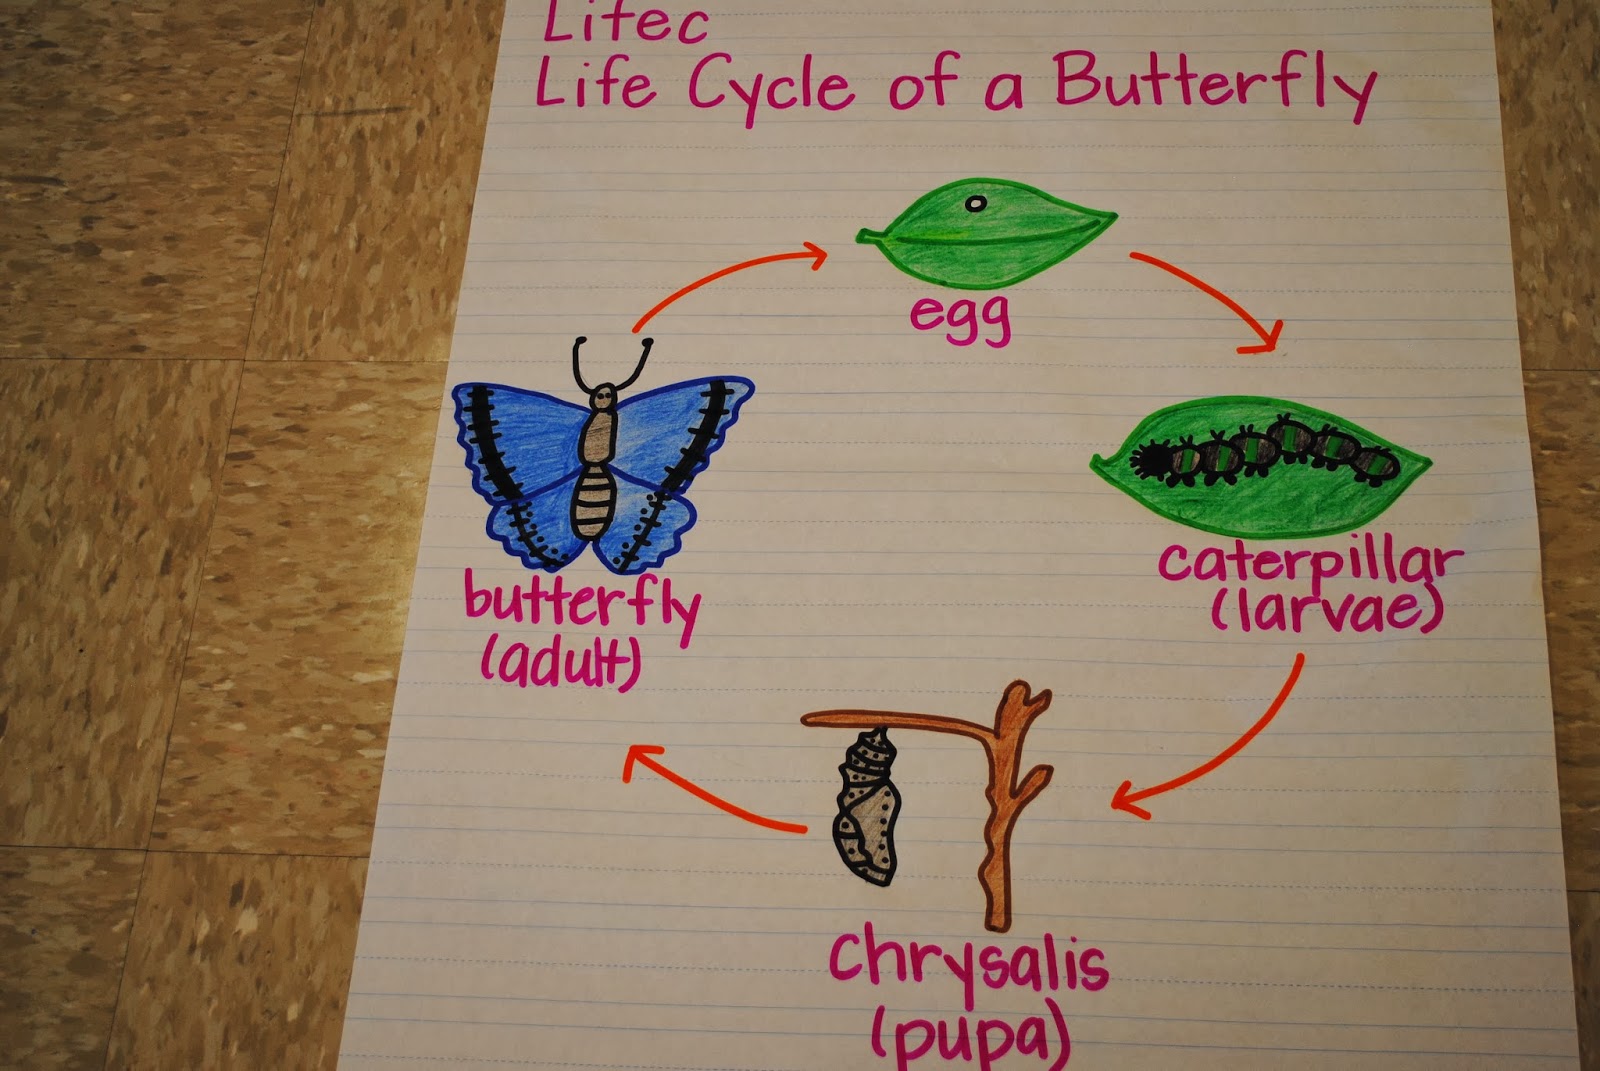 Lifec
Life Cycle of a Butterfly
egg
caterpillar
(larvae)
butterfly
(adult)
chrysalis
(pupa)